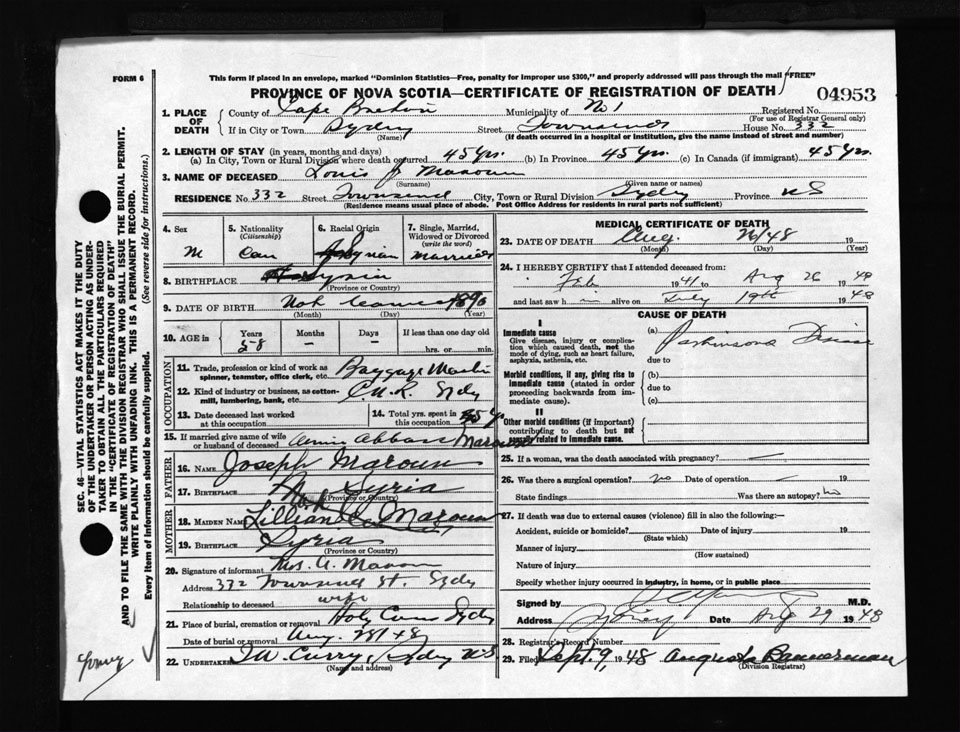 FORM 6
This form if placed in an envelope, marked "Dominion Statistics—Free, penalty for improper use $300," and properly addressed will pass through the mail "FREE"
PROVINCE OF NOVA SCOTIA—CERTIFICATE OF REGISTRATION OF DEATH
04953
1. PLACE OF DEATH
County of Cape Breton Municipality of No 1 Registered No.
(For use of Registrar General only)
If in City or Town Sydney Street Townsend House No. 332
(Name) (If death occurred in a hospital or institution, give the name instead of street and number)
2. LENGTH OF STAY (in years, months and days)
(a) In City, Town or Rural Division where death occurred 45 Yrs. (b) In Province 45 Yrs. (c) In Canada (if immigrant) 45 Yrs.
3. NAME OF DECEASED Louis J Maroun
(Surname) (Given name or names)
RESIDENCE No. 332 Street Townsend City, Town or Rural Division Sydney Province NS
(Residence means usual place of abode. Post Office Address for residents in rural parts not sufficient)
4. Sex
M
5. Nationality
(Citizenship)
Can
6. Racial Origin
Syrian
7. Single, Married, Widowed or Divorced
(write the word)
Married
8. BIRTHPLACE
(Province or Country)
9. DATE OF BIRTH Not 1890
(Month) (Day) (Year)
10. AGE in
Years Months Days If less than one day old
58 — — hrs. or min.
OCCUPATION
11. Trade, profession or kind of work as spinner, teamster, office clerk, etc. Baggage
12. Kind of industry or business, as cotton-mill, lumbering, bank, etc. C.N.R. Sydy
13. Date deceased last worked at this occupation
14. Total yrs. spent in this occupation
15. If married give name of wife or husband of deceased Annie Abbass Maroun
FATHER
16. NAME Joseph Maroun
17. BIRTHPLACE Syria
(Province or Country)
MOTHER
18. MAIDEN NAME Lillian Maroun
19. BIRTHPLACE Syria
(Province or Country)
20. Signature of informant Mrs. A. Maroun
Address 332 Townsend St. Sydy
Relationship to deceased wife
21. Place of burial, cremation or removal Holy Cross Sydy
Date of burial or removal Aug. 28/48
22. UNDERTAKER Curry, Sydney N.S.
(Name and address)
MEDICAL CERTIFICATE OF DEATH
23. DATE OF DEATH Aug. 26/48 19
(Month) (Day) (Year)
24. I HEREBY CERTIFY that I attended deceased from:
Feb 1941 to Aug 26 1948
and last saw him alive on July 19th 1948
CAUSE OF DEATH
I
Immediate cause
Give disease, injury or complication which caused death, not the mode of dying, such as heart failure, asphyxia, asthenia, etc.
(a) Parkinsons Disease
due to
Morbid conditions, if any, giving rise to immediate cause (stated in order proceeding backwards from immediate cause).
(b)
due to
(c)
II
Other morbid conditions (if important) contributing to death but not causally related to immediate cause.
25. If a woman, was the death associated with pregnancy? —
26. Was there a surgical operation? no Date of operation — 19
State findings Was there an autopsy? no
27. If death was due to external causes (violence) fill in also the following:—
Accident, suicide or homicide? Date of injury 19
(State which)
Manner of injury
(How sustained)
Nature of injury
Specify whether injury occurred in industry, in home, or in public place
Signed by M.D.
Address Sydney Date Aug 29 1948
28. Registrar's Record Number
29. Filed Sept. 9, 1948 Augusta Bannerman
(Division Registrar)
SEC. 46—VITAL STATISTICS ACT MAKES IT THE DUTY
OF THE UNDERTAKER OR PERSON ACTING AS UNDER-
TAKER TO OBTAIN ALL THE PARTICULARS REQUIRED
IN THE "CERTIFICATE OF REGISTRATION OF DEATH"
AND TO FILE THE SAME WITH THE DIVISION REGISTRAR WHO SHALL ISSUE THE BURIAL PERMIT.
WRITE PLAINLY WITH UNFADING INK. THIS IS A PERMANENT RECORD.
Every item of information should be carefully supplied. (See reverse side for instructions.)